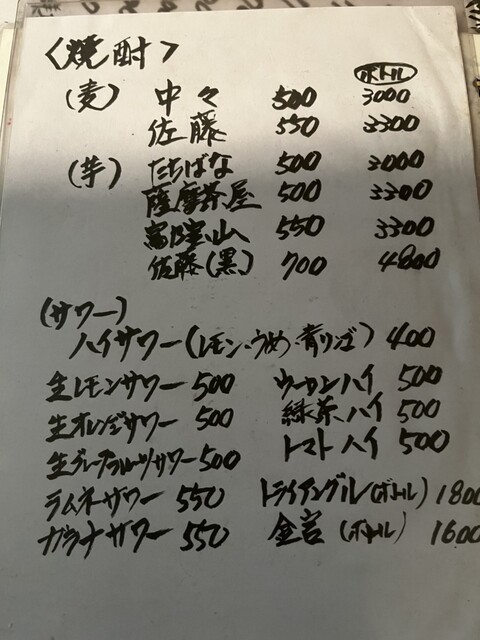 〈焼酎〉
ボトル
(麦) 中々 500 3000
佐藤 550 3300
(芋) たちばな 500 3000
薩摩茶屋 500 3300
富乃宝山 550 3300
佐藤(黒) 700 4800
(サワー)
ハイサワー(レモン・うめ・青リンゴ) 400
生レモンサワー 500 ウーロンハイ 500
生オレンジサワー 500 緑茶ハイ 500
生グレープフルーツサワー 500 トマトハイ 500
ラムネサワー 550 トライアングル(ボトル) 1800
ガラナサワー 550 金宮(ボトル) 1600